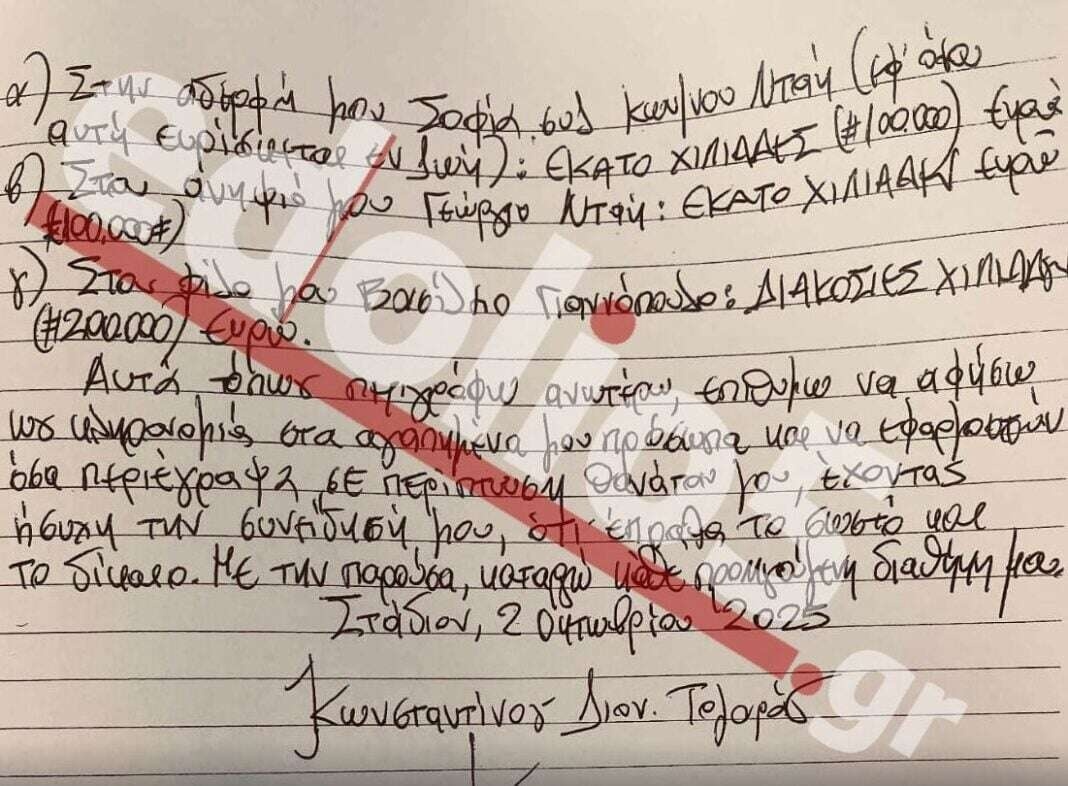 α) Στην αδερφή μου Σοφία συζ. Κων/νου Νταή (εφ' όσον
αυτή ευρίσκεται εν ζωή): ΕΚΑΤΟ ΧΙΛΙΑΔΕΣ (#100.000) Ευρώ
β) Στον ανηψιό μου Γεώργιο Νταή: ΕΚΑΤΟ ΧΙΛΙΑΔΕΣ Ευρώ
#100.000#)
γ) Στον φίλο μου Βασίλειο Γιαννόπουλο: ΔΙΑΚΟΣΙΕΣ ΧΙΛΙΑΔΕΣ
(#200.000) Ευρώ.
Αυτά όπως περιγράφω ανωτέρω, επιθυμώ να αφήσω
ως κληρονομιάς στα αγαπημένα μου πρόσωπα και να εφαρμοστούν
όσα περιέγραψα ΣΕ περίπτωση θανάτου μου, έχοντας
ήσυχη την συνείδησή μου, ότι έπραξα το σωστό και
το δίκαιο. Με την παρούσα, καταργώ κάθε προηγούμενη διαθήκη μου.
Στάδιον, 2 Οκτωβρίου 2025
Κωνσταντίνος Διον. Πολαράς
edolio5.gr